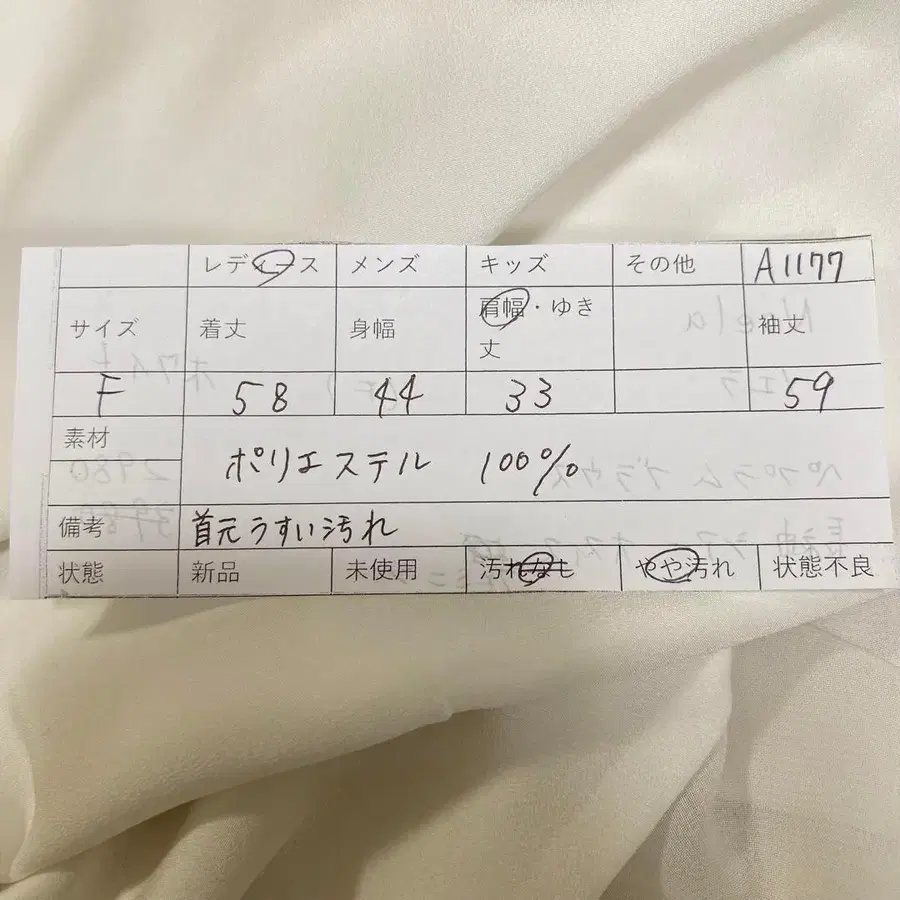 レディース メンズ キッズ その他 A1177
サイズ 着丈 身幅 肩幅・ゆき丈 袖丈
F 58 44 33 59
素材 ポリエステル 100%
備考 首元うすい汚れ
状態 新品 未使用 汚れなし やや汚れ 状態不良